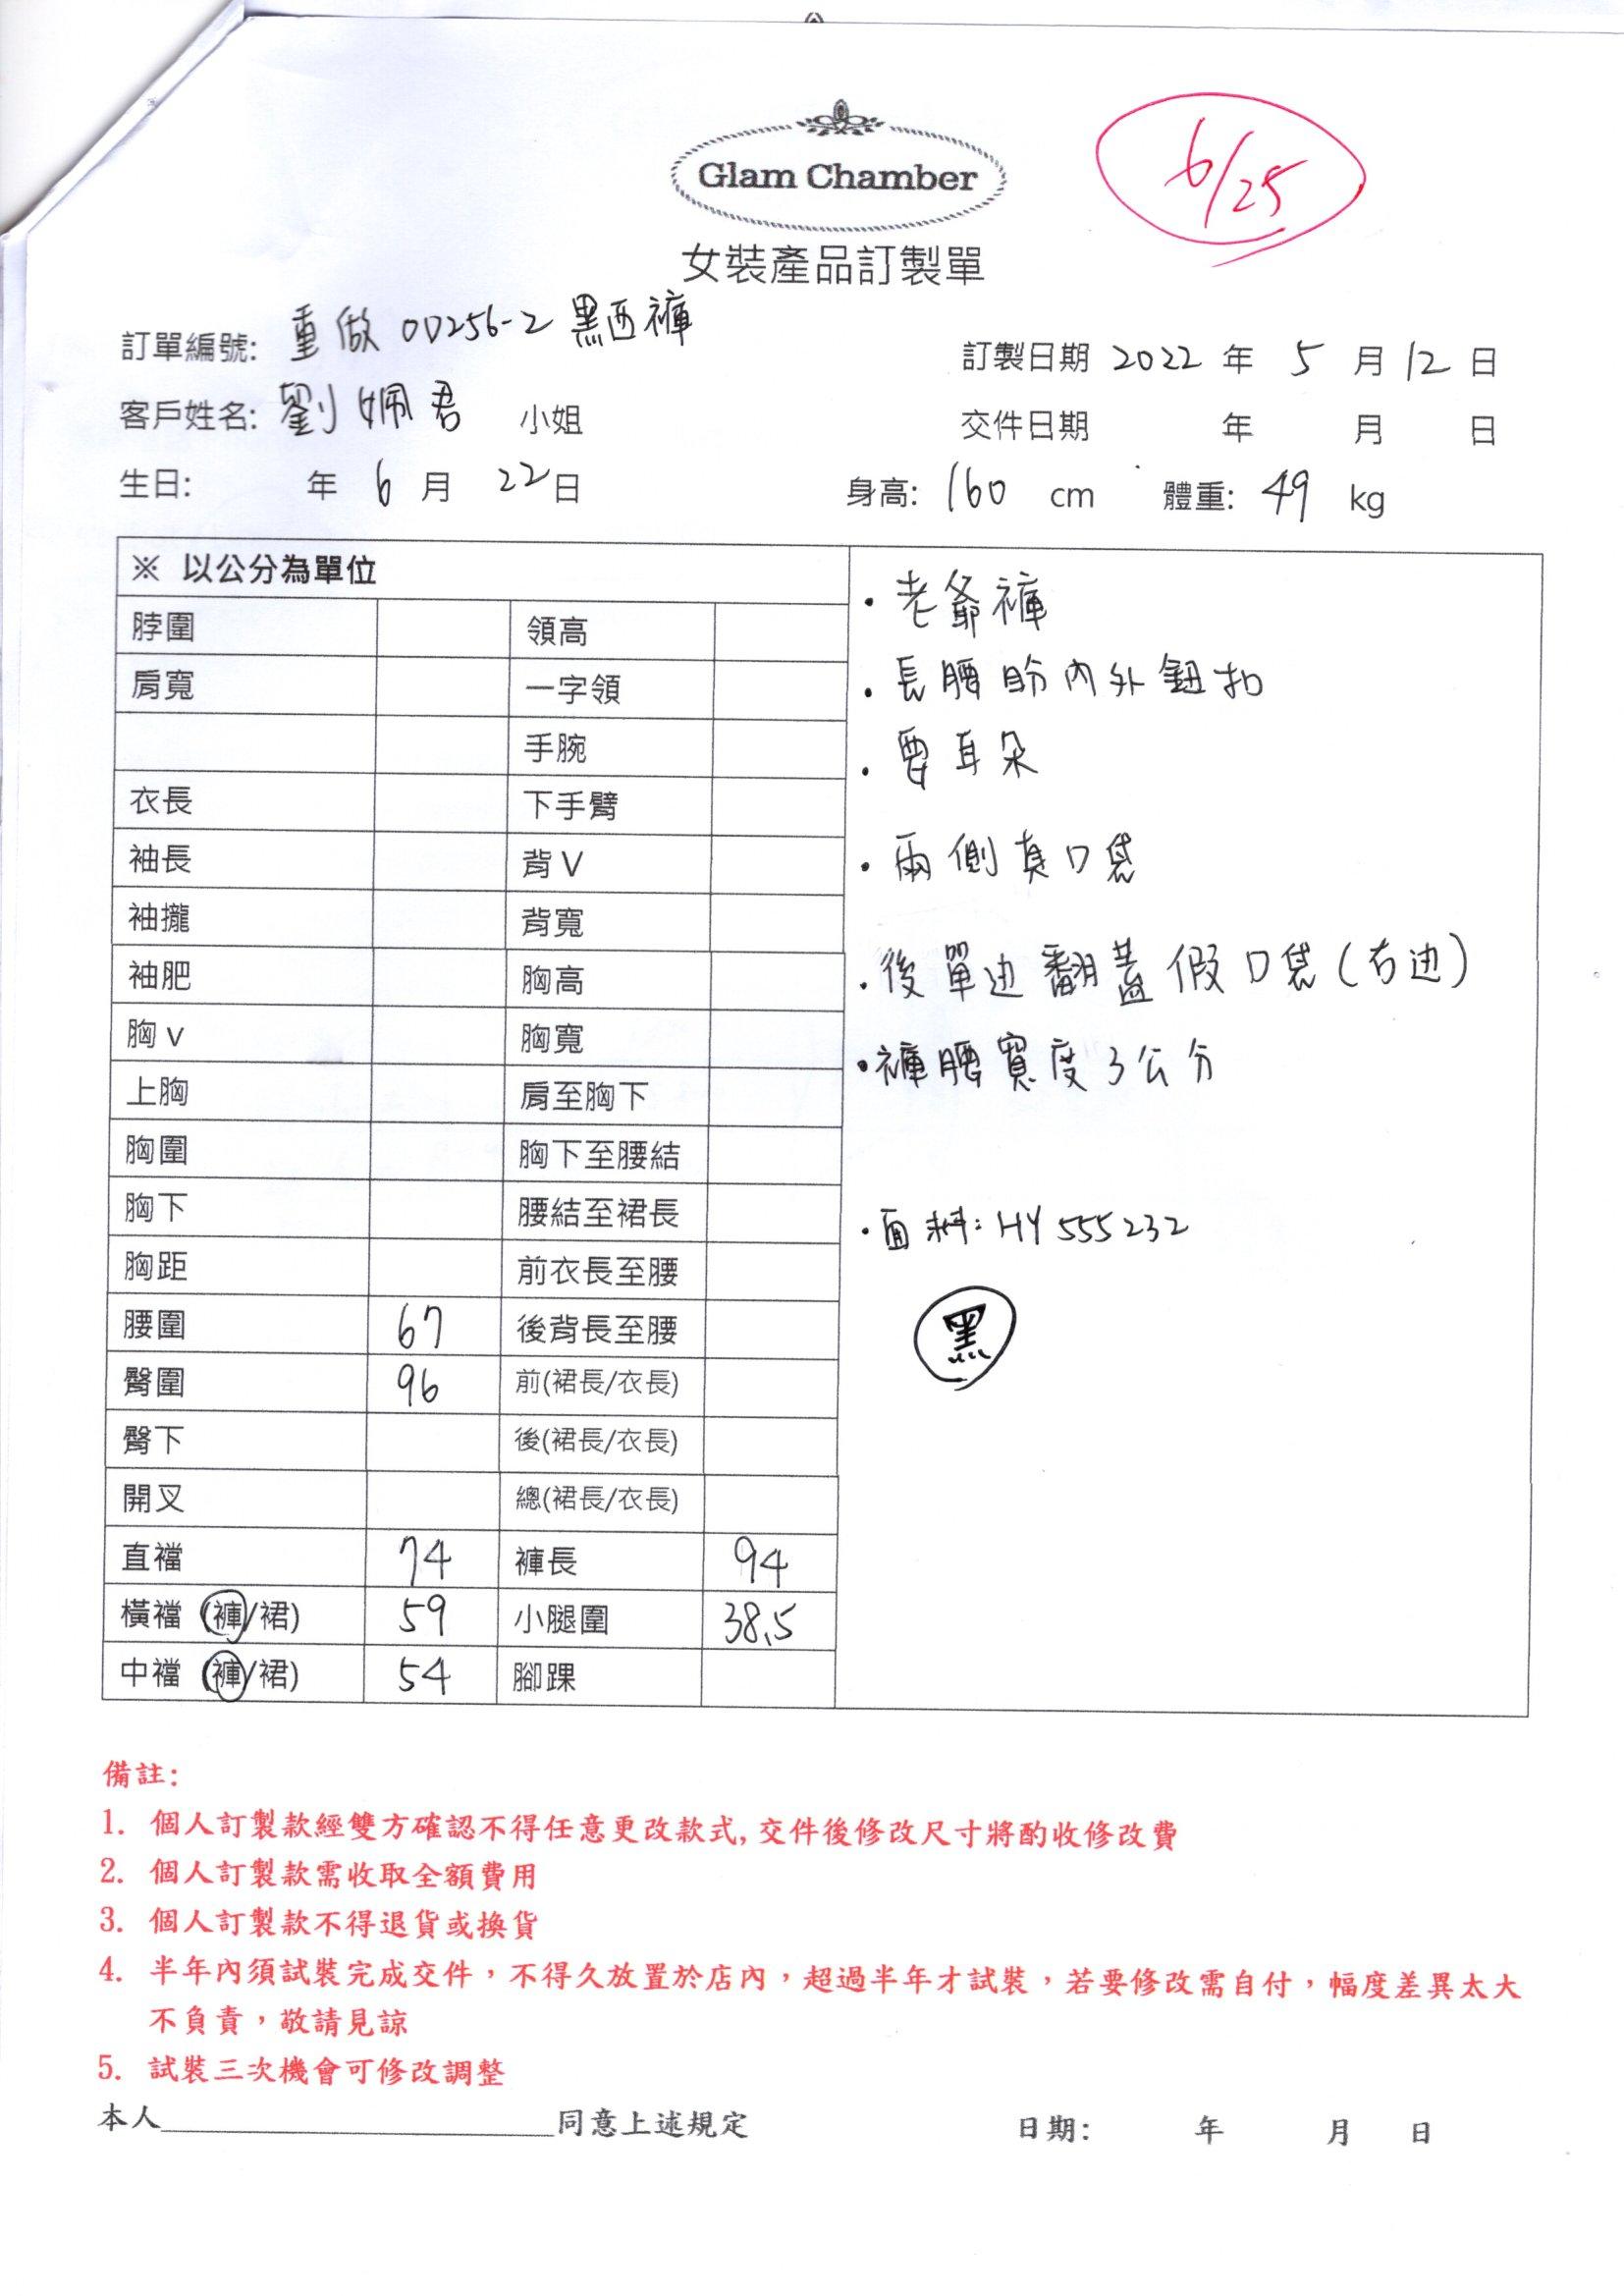 Glam Chamber
6/25
女裝產品訂製單
訂單編號: 重做 OD256-2 黑西褲
訂製日期 2022 年 5 月 12 日
客戶姓名: 劉姵君 小姐
交件日期 年 月 日
生日: 年 6 月 22 日
身高: 160 cm 體重: 49 kg
※ 以公分為單位
脖圍 領高
肩寬 一字領
手腕
衣長 下手臂
袖長 背V
袖攏 背寬
袖肥 胸高
胸v 胸寬
上胸 肩至胸下
胸圍 胸下至腰結
胸下 腰結至裙長
胸距 前衣長至腰
腰圍 67 後背長至腰
臀圍 96 前(裙長/衣長)
臀下 後(裙長/衣長)
開叉 總(裙長/衣長)
直襠 74 褲長 94
橫襠 (褲/裙) 59 小腿圍 38.5
中襠 (褲/裙) 54 腳踝
・老爺褲
・長腰 內外鈕扣
・要耳朵
・兩側真口袋
・後單边翻蓋假口袋(右边)
・褲腰寬度3公分
・面料: HY 555232
黑
備註:
1. 個人訂製款經雙方確認不得任意更改款式,交件後修改尺寸將酌收修改費
2. 個人訂製款需收取全額費用
3. 個人訂製款不得退貨或換貨
4. 半年內須試裝完成交件，不得久放置於店內，超過半年才試裝，若要修改需自付，幅度差異太大
不負責，敬請見諒
5. 試裝三次機會可修改調整
本人____________________同意上述規定 日期: 年 月 日